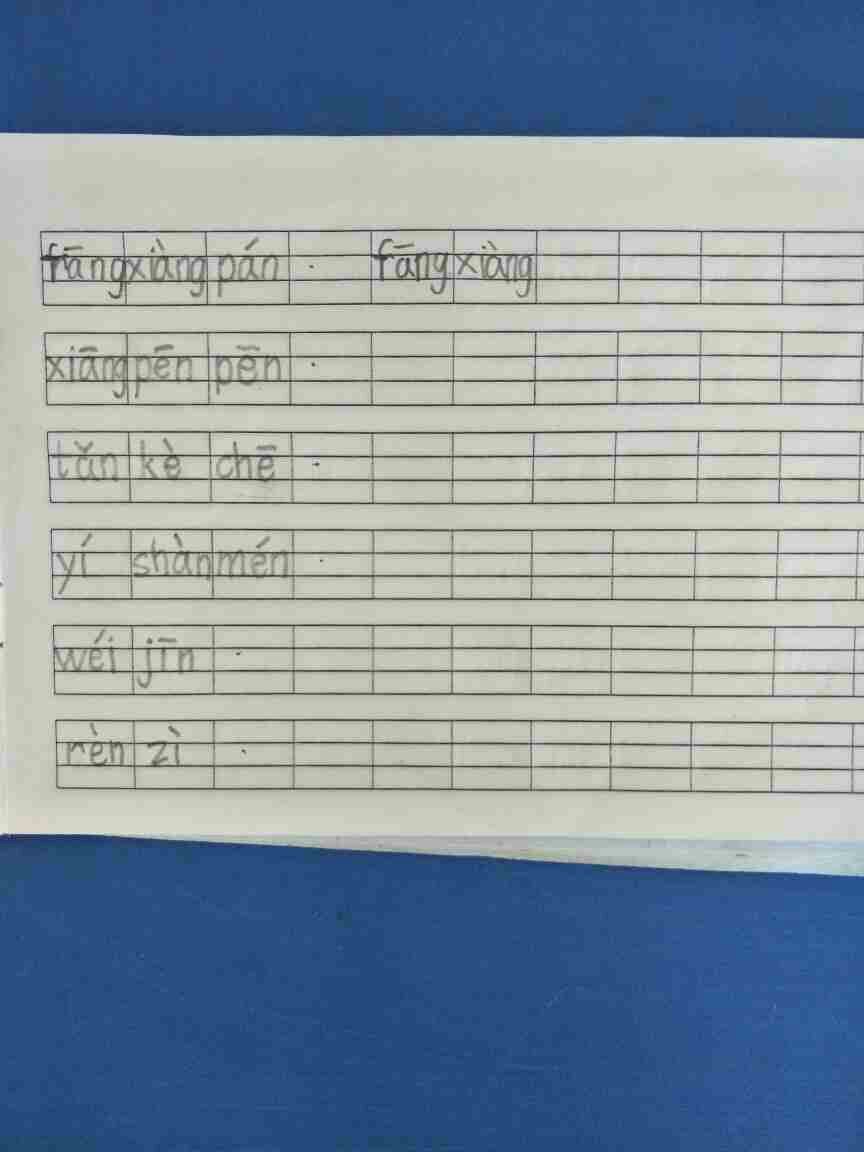 fāng xiàng pán . fāng xiàng
xiāng pēn pēn .
tǎn kè chē .
yí shàn mén .
wéi jīn .
rèn zì .